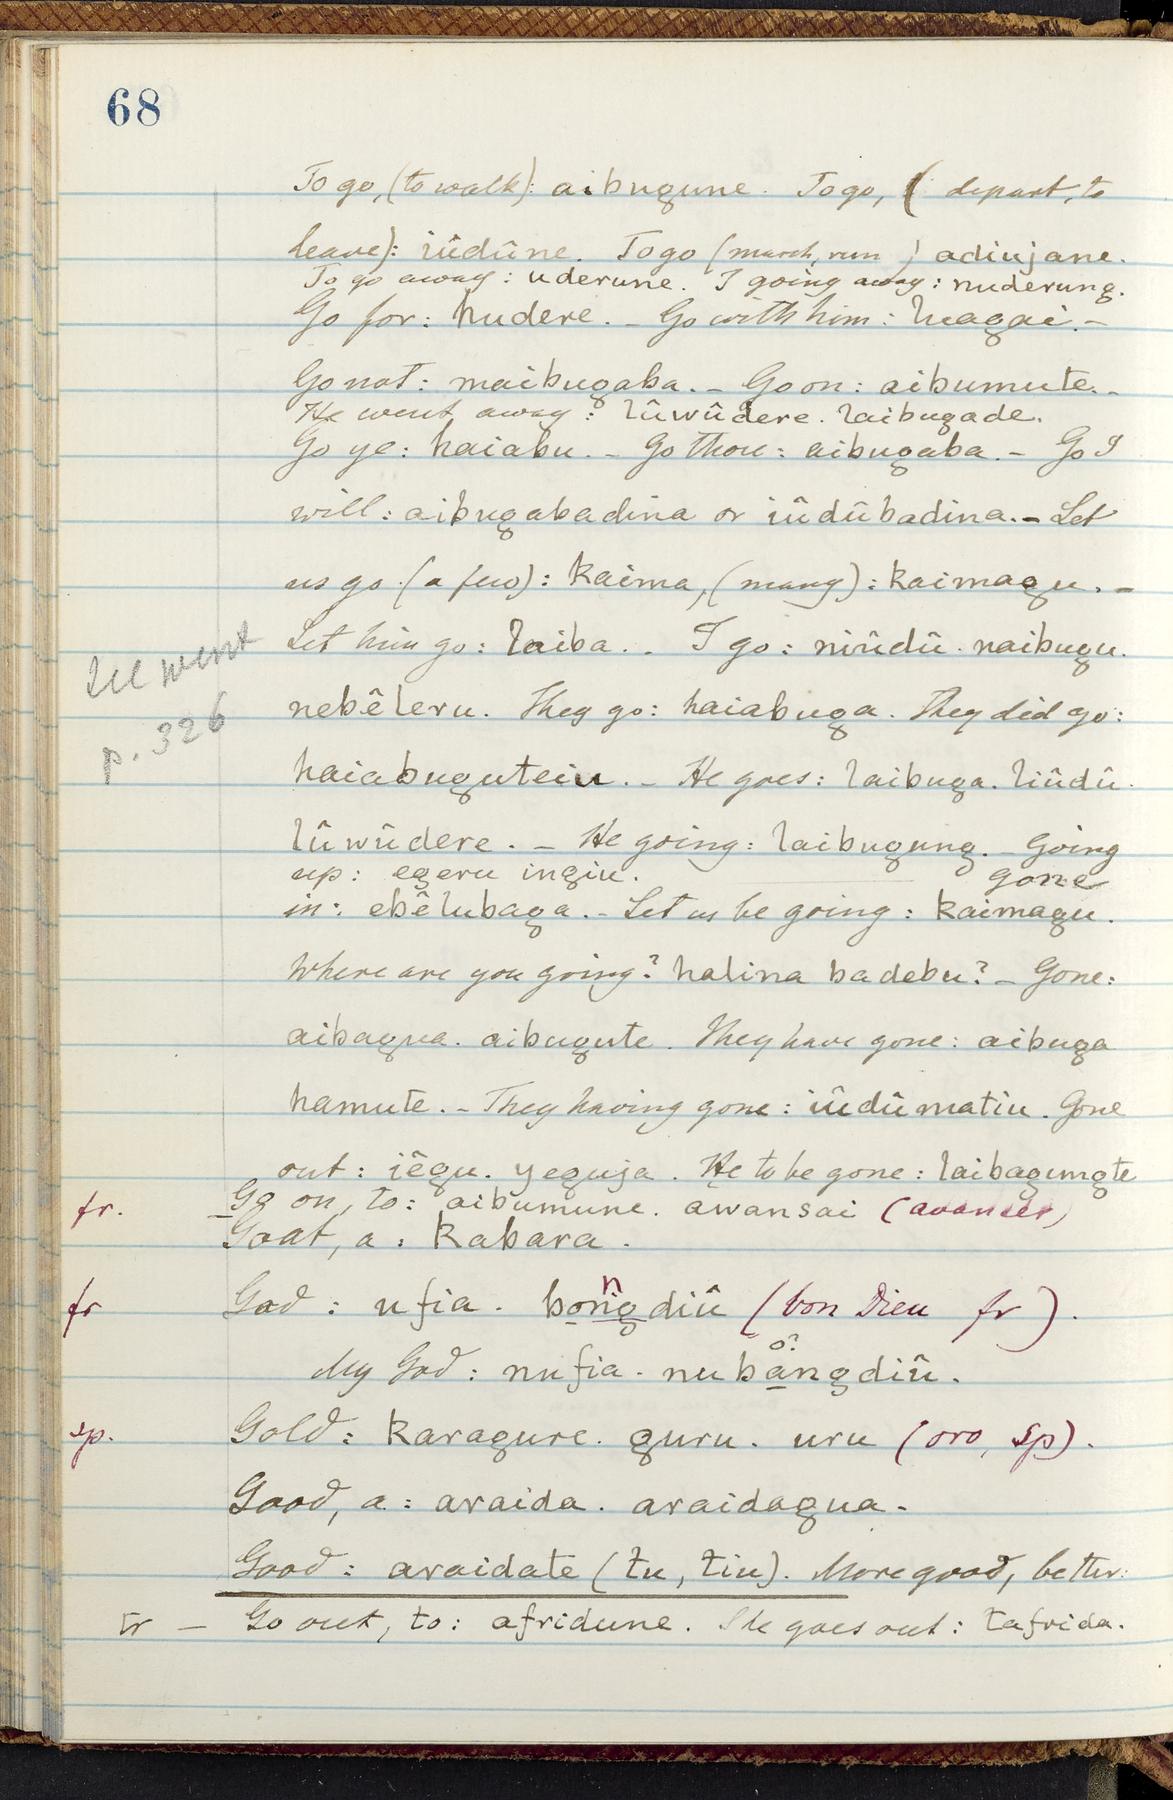 68
To go, (to walk): aibugune. To go, ( depart, to
leave): iûdûne. To go (march, run ) adiujane.
To go away: uderune. I going away: nuderung.
Go for: hudere. - Go with him: huagai. -
Go not: maibugaba. - Go on: aibumute. -
He went away: lûwûdere. laibugade.
Go ye: haiabu. - Go thou: aibugaba. - Go I
will: aibugabadina or iûdûbadina. - Let
us go (a few): kaima, (many): kaimagu. -
Let him go: laiba. - I go: niûdû. naibugu.
He went
p. 326
nebêleru. They go: haiabuga. They did go:
haiabugutein. - He goes: laibuga. liûdû.
lûwûdere. - He going: laibugung. - Going
up: egeru ingiu. gone
in: ebêlubaga. - Let us be going: kaimagu.
Where are you going? halina badebu? - Gone:
aibagua. aibugute. They have gone: aibuga
hamute. - They having gone: iûdûmatiu. Gone
out: iêgu. yeguja. He to be gone: laibagungte
fr. Go on, to: aibumune. awansai (avancer)
Goat, a: kabara.
fr God: ufia. bongdiû (bon Dieu fr).
n
o?
My God: nufia. nubangdiû.
sp. Gold: karagure. guru. uru (oro, sp).
Good, a: araida. araidagua.
Good: araidate (tu, tiu). More good, better:
tr - Go out, to: afridune. She goes out: tafrida.